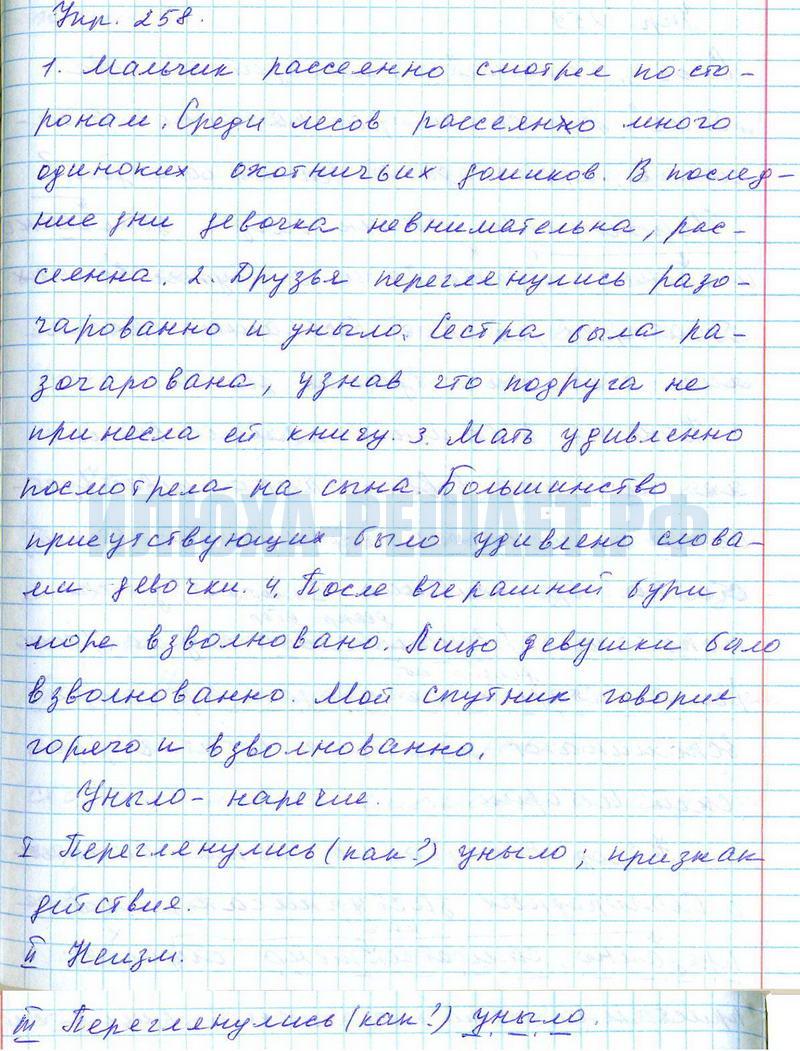 Упр. 258.
1. Мальчик рассеянно смотрел по сто-
ронам. Среди лесов рассеянно много
одиноких охотничьих домиков. В послед-
ние дни девочка невнимательна, рас-
сеянна. 2. Друзья переглянулись разо-
чарованно и уныло. Сестра была ра-
зочарована, узнав что подруга не
принесла ей книгу. 3. Мать удивленно
посмотрела на сына. Большинство
присутствующих было удивлено слова-
ми девочки. 4. После вчерашней бури
море взволновано. Лицо девушки было
взволнованно. Мой спутник говорил
горячо и взволнованно.
Уныло - наречие.
I Переглянулись (как?) уныло; признак
действия.
II Неизм.
III Переглянулись (как?) уныло.
ИПОХА РЕШАЕТ.РФ